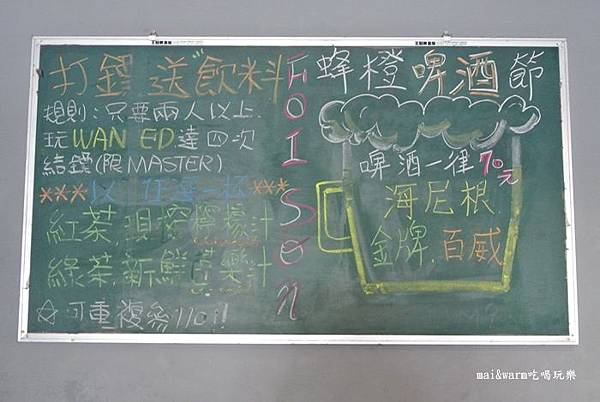 打鏢送飲料
規則：只要兩人以上
玩WANTED達四次
結鏢(限MASTER)
***以 任選一杯***
紅茶.現搾檸檬汁
綠茶.新鮮芭樂汁
☆可重複參加!!
FOISON
蜂橙啤酒節
啤酒一律70元
海尼根.
金牌.百威
mai&warm吃喝玩樂